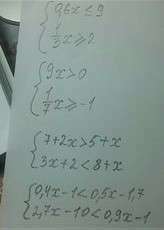 { 0,6x ≤ 9
1/3 x ≥ 2
{ 9x > 0
1/7 x ≥ -1
{ 7+2x > 5+x
3x+2 < 8+x
{ 0,4x-1 < 0,5x-1,7
2,7x-10 < 0,9x-1